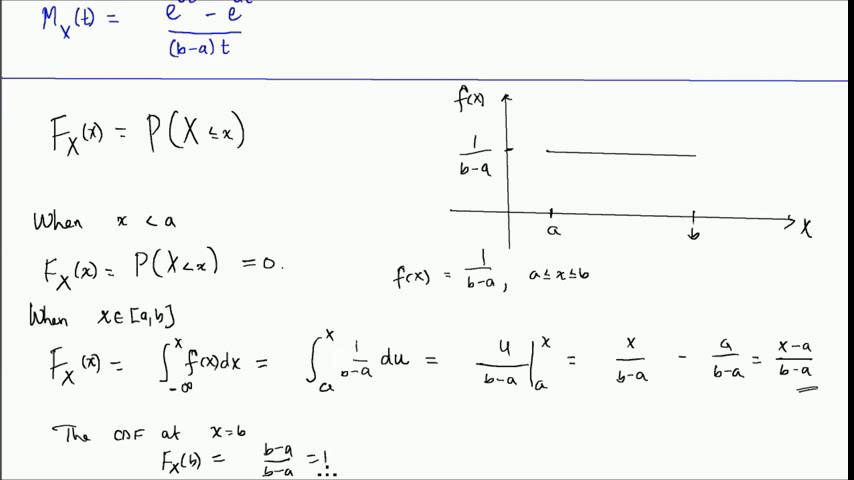 M_X(t) = e - e / (b-a)t
F_X(x) = P(X ≤ x)
f(x)
1/(b-a)
a b X
When x < a
F_X(x) = P(X<x) = 0.
f(x) = 1/(b-a), a ≤ x ≤ b
When x ∈ [a,b]
F_X(x) = ∫_{-∞}^{x} f(x)dx = ∫_{a}^{x} 1/(b-a) du = u/(b-a) |_{a}^{x} = x/(b-a) - a/(b-a) = (x-a)/(b-a)
The CDF at x=b
F_X(b) = (b-a)/(b-a) = 1